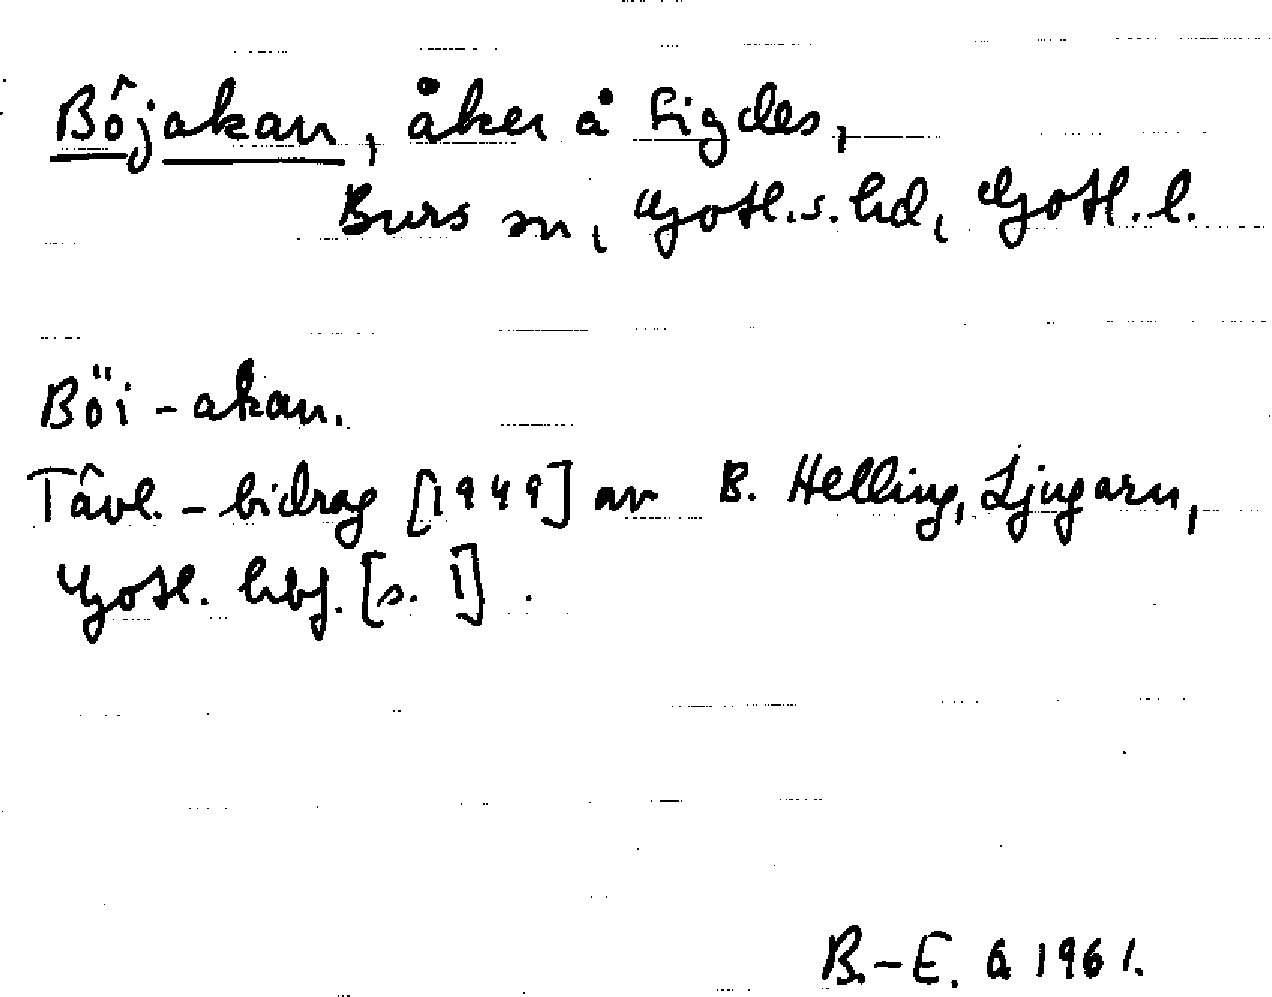 Böjakan, åker å Ligdes,
Burs sn, Gotl.s. hd, Gotl. l.
Böi - akan.
Tävl. - bidrag [1949] av B. Helling, Ljugarn,
Gotl. hbf. [s. 1] .
B.-E. A 1961.